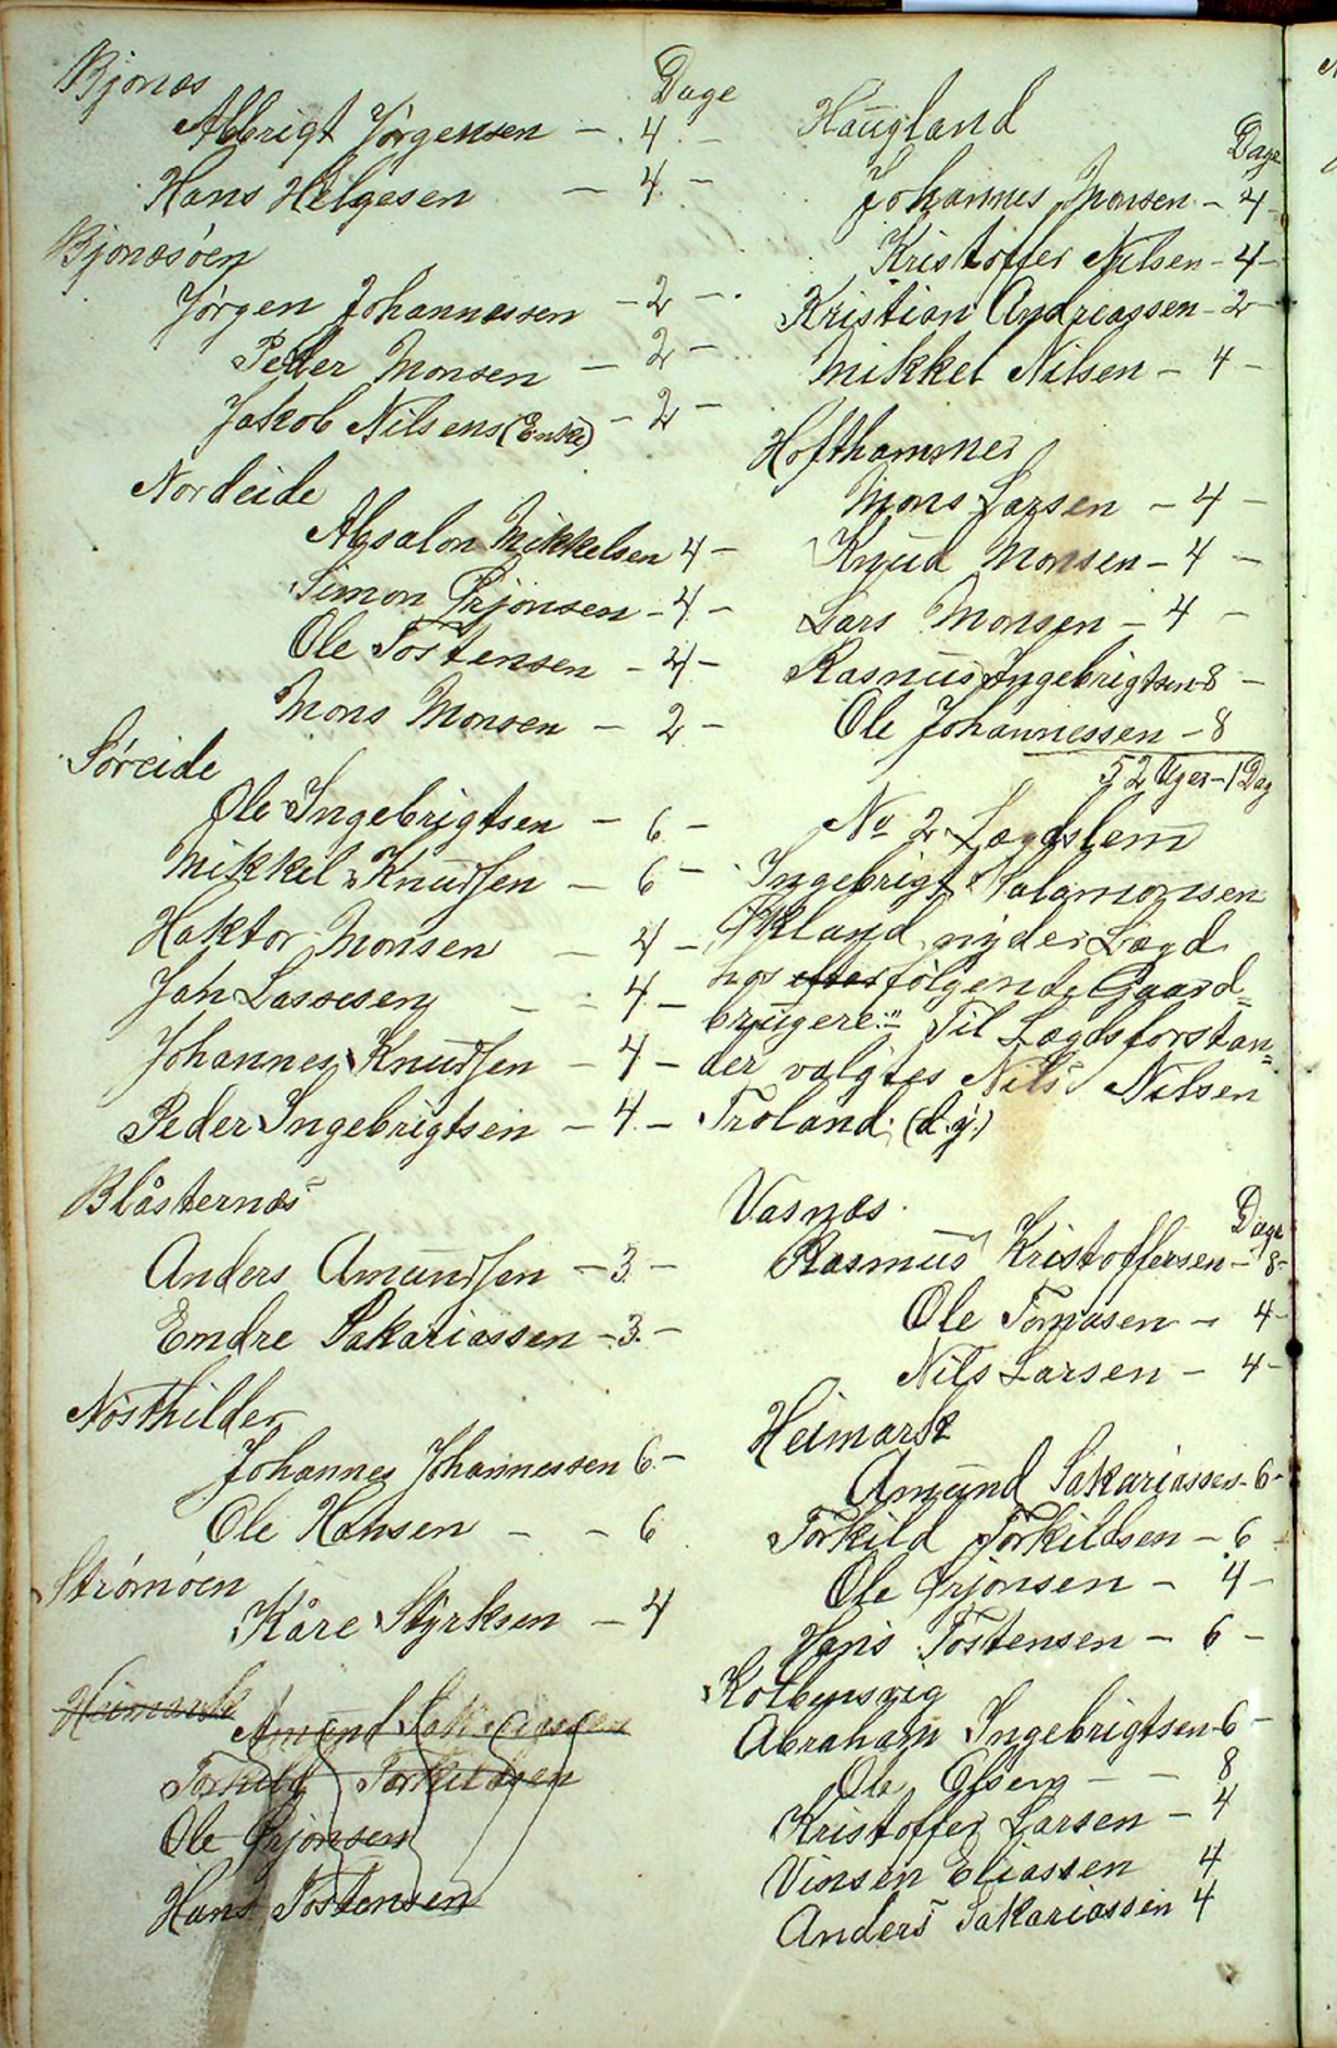 Bjonæs
Dage
Albrigt Jørgensen - 4 -
Hans Helgesen - 4 -
Bjonæsøen
Jørgen Johannessen - 2 -
Peder Monsen - 2 -
Jakob Nilsens (Enke) - 2 -
Nordeide
Absalon Mikkelsen 4 -
Simon Brjonsen - 4 -
Ole Tostensen - 4 -
Mons Monsen - 2 -
Søreide
Ole Ingebrigtsen - 6 -
Mikkel Knudsen - 6 -
Haktor Monsen - 4 -
Jan Lassesen - 4 -
Johannes Knudsen - 4 -
Peder Ingebrigtsen - 4 -
Blåsternæs
Anders Amundsen - 3 -
Emdre Sakariassen - 3 -
Nøsthilder
Johannes Johannessen 6 -
Ole Hansen - - 6
Strømøen
Kåre Styrksen - 4
Heimark
Amund Sakariassen
Torkild Torkildsen
Ole Brjonsen
Hans Tostensen
Haugland
Dage
Johannes Monsen - 4 -
Kristoffer Nilsen - 4 -
Kristian Andreassen - 2 -
Mikkel Nilsen - 4 -
Hofthammer
Mons Larsen - 4 -
Knud Monsen - 4 -
Lars Monsen - 4 -
Rasmus Ingebrigtsen 8 -
Ole Johannessen - 8
52 Uger - 1 Dag
No 2 Lægdslem
Ingebrigt Salamonsen
Økland nyder Lægd
hos efter følgende Gaard=
brugere:" Til Lægdsforstan=
der valgtes Nils Nilsen
Troland. (d.y.)
Vasnæs
Dage
Rasmus Kristoffersen - 8 -
Ole Tomasen - 4 -
Nils Larsen - 4 -
Heimark
Amund Sakariassen - 6 -
Torkild Torkildsen - 6
Ole Brjonsen - 4 -
Hans Tostensen - 6 -
Kolbensvig
Abraham Ingebrigtsen 6 -
Ole Olsen - - 8
Kristoffer Larsen - 4
Vinsen Eliassen 4
Anders Sakariassen 4